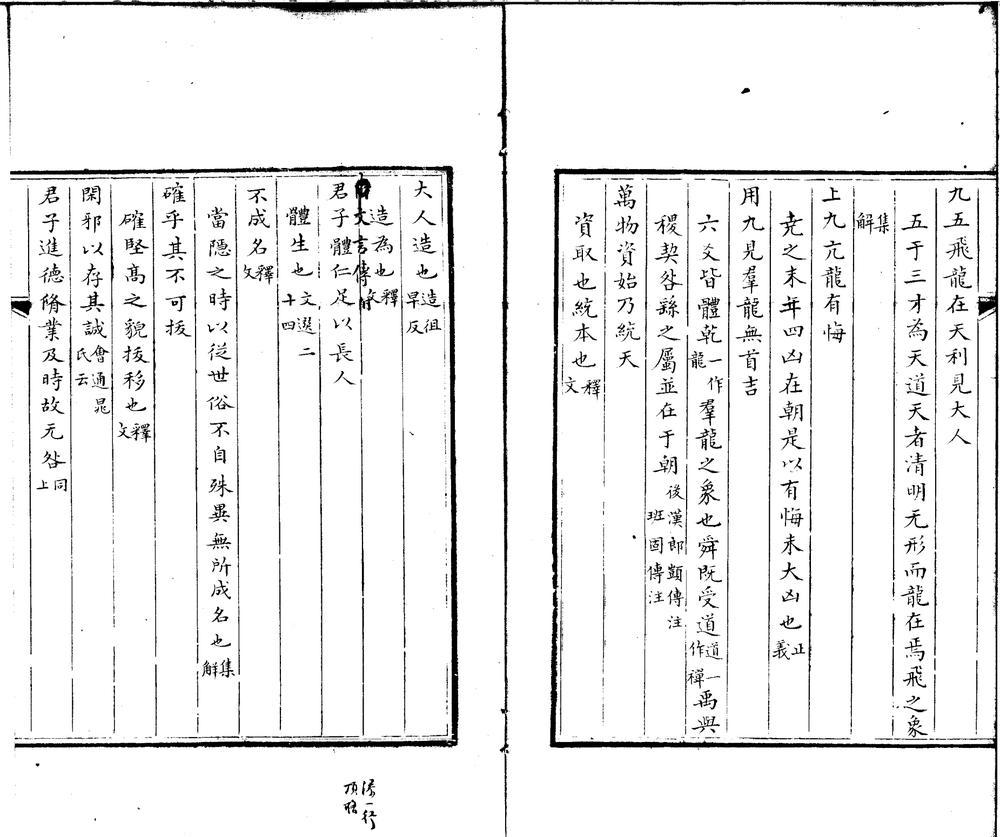 九五飛龍在天利見大人
五于三才為天道天者清明无形而龍在焉飛之象
集解
上九亢龍有悔
堯之末年四凶在朝是以有悔未大凶也正義
用九見羣龍無首吉
六爻皆體乾一作龍羣龍之象也舜既受道道一作禪禹與
稷契咎繇之屬並在于朝後漢郎顗傳注班固傳注
萬物資始乃統天
資取也統本也釋文
大人造也造徂早反
造為也釋文
文言傳
君子體仁足以長人
體生也文選二十四
不成名釋文
當隱之時以從世俗不自殊異無所成名也集解
確乎其不可拔
確堅髙之貌拔移也釋文
閑邪以存其誠會通晁氏云
君子進德脩業及時故无咎同上
添一行
頂格